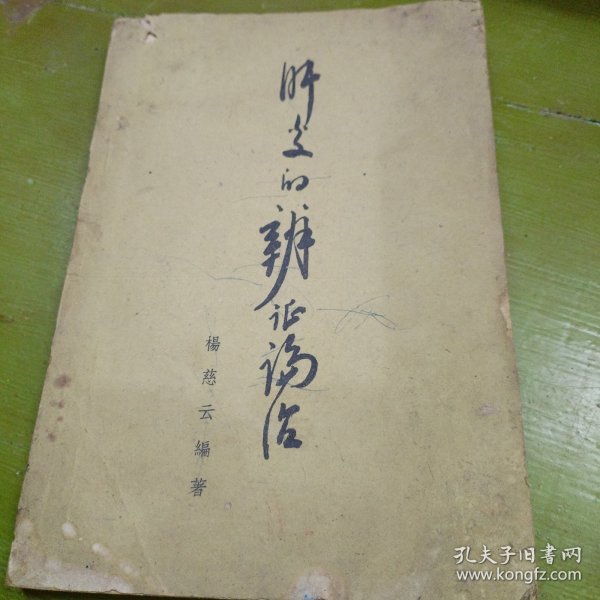 肝炎的辨证論治
楊慈云編著
孔夫子旧書网
www.kongfz.com